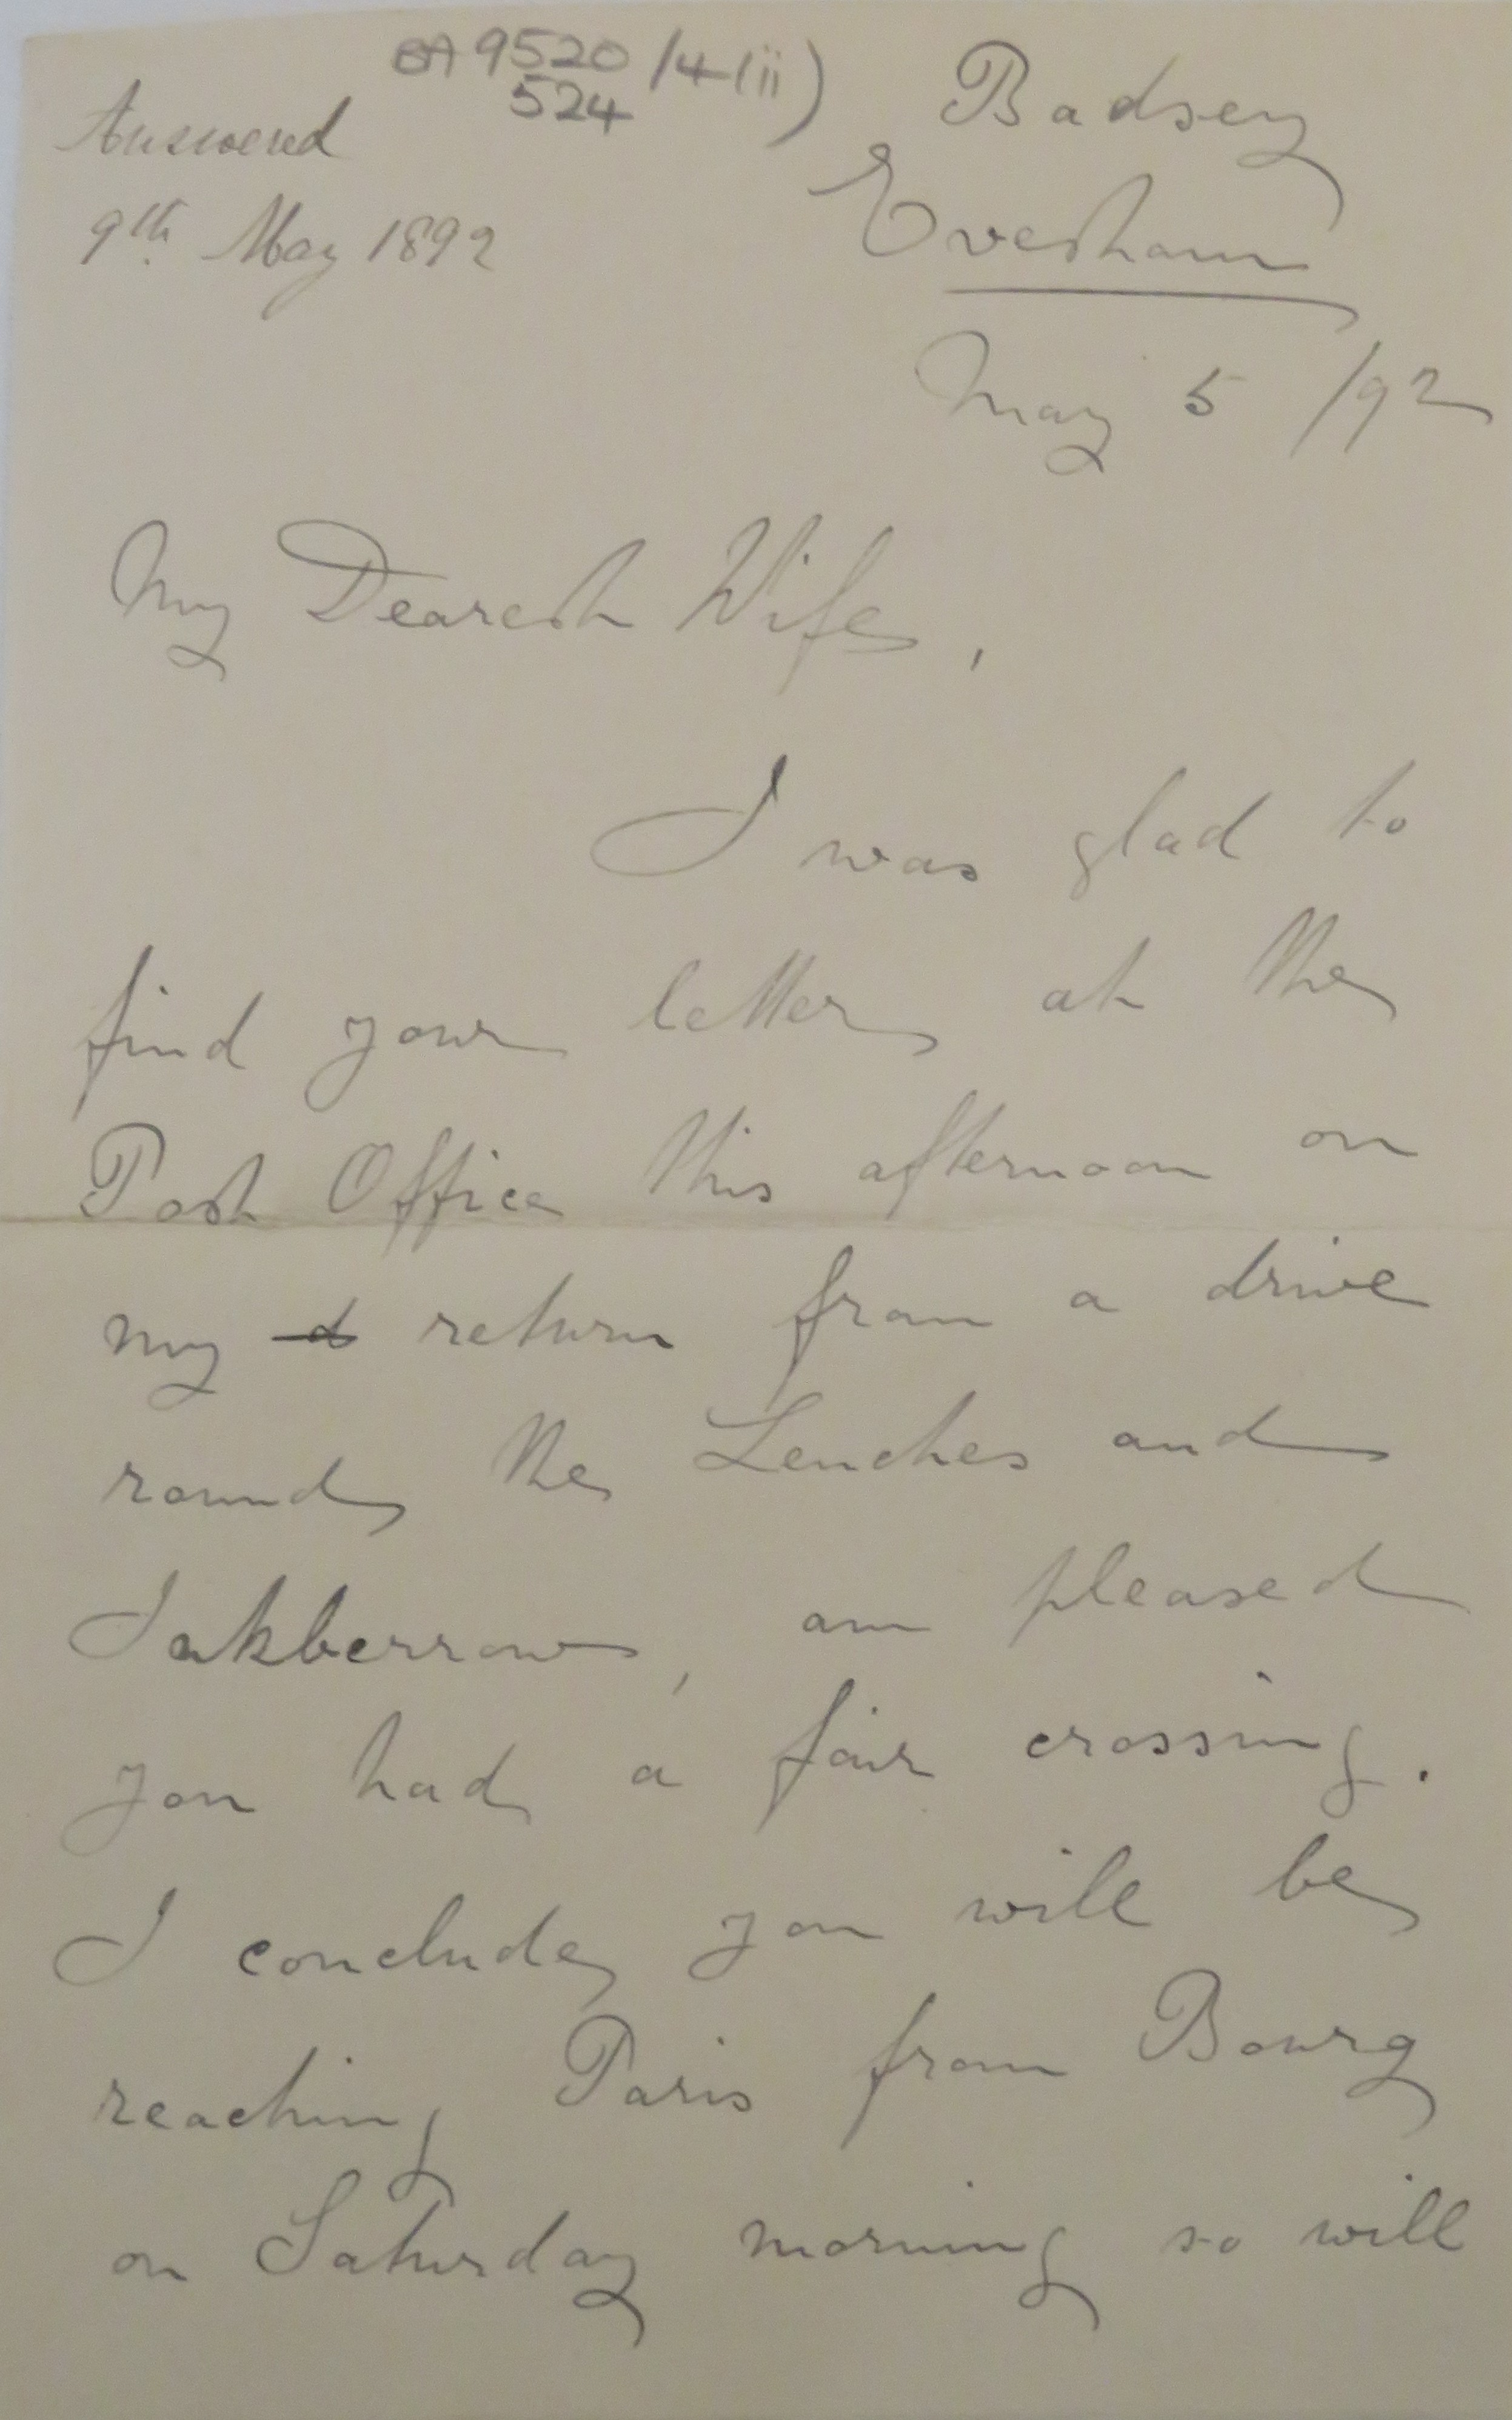 BA 9520/4(ii)
524
Answered
9th. May 1892
Badsey
Evesham
May 5 /92
My Dearest Wife,
I was glad to
find your letter at the
Post Office this afternoon on
my return from a drive
round the Lenches and
Inkberrow, am pleased
you had a fair crossing.
I conclude you will be
reaching Paris from Bourg
on Saturday morning so will